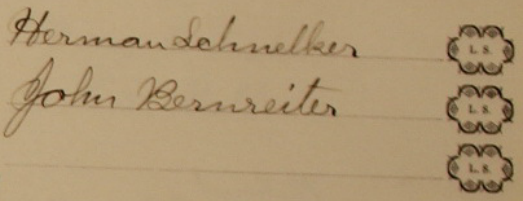 Herman Schnelker L. S.
John Bernreiter L. S.
L. S.